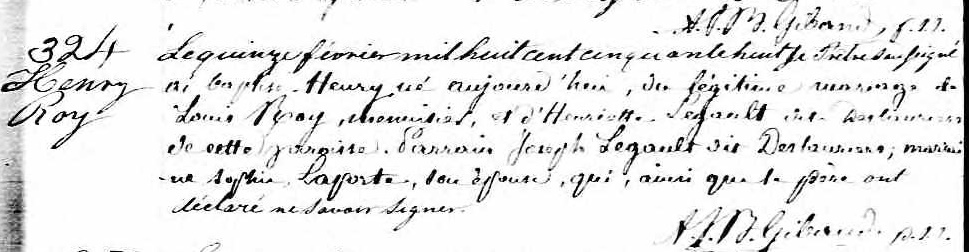 A. J. B. Giband, p. st.
324
Henry
Roy
Le quinze février mil huit cent cinquante huit je Prêtre soussigné
ai baptisé Henry né aujourd'hui, du légitime mariage de
Louis Roy, menuisier, et d'Henriette Legault dit Deslauriers
de cette paroisse. Parrain Joseph Legault dit Deslauriers; marrai
-ne Sophie Laporte, son épouse, qui, ainsi que le père ont
déclaré ne savoir signer.
A. J. B. Giband